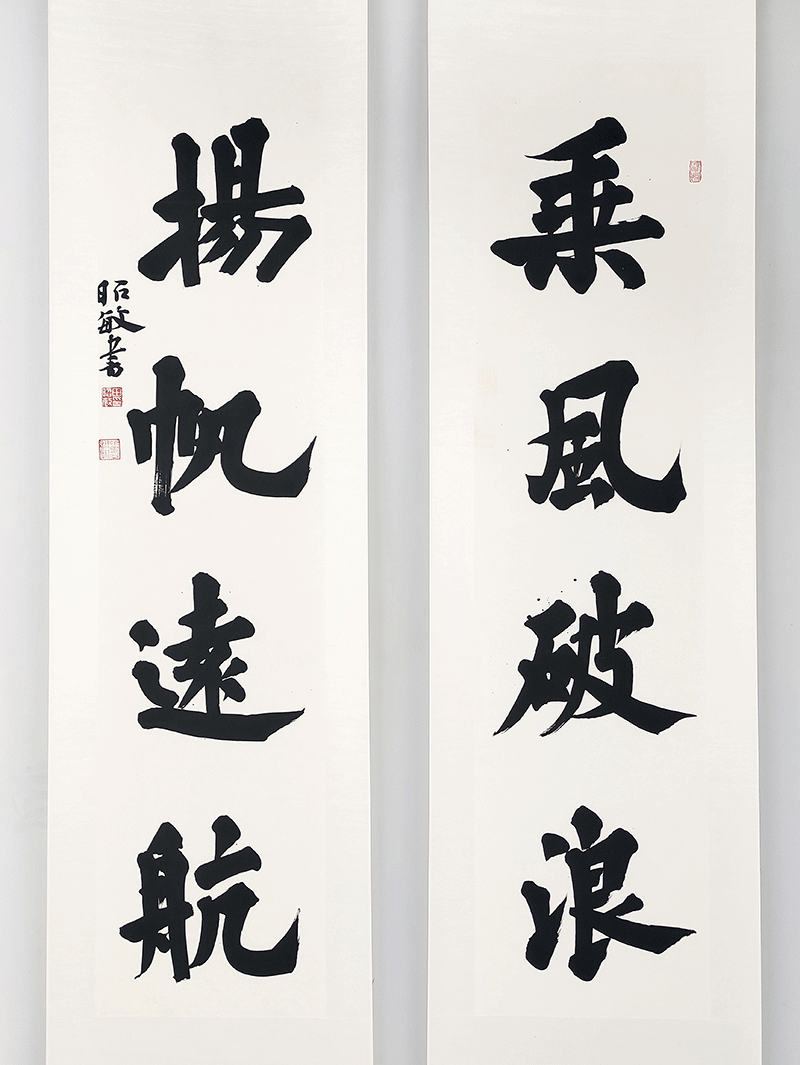 乘風破浪
揚帆遠航
昭敏書